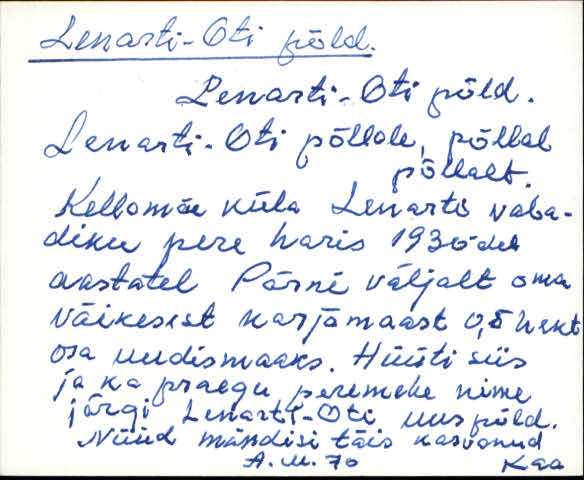 Lenarti-Oti põld.
Lenarti-Oti põld.
Lenarti-Oti põllole, põllal
põllalt.
Kellomäe küla Lenarti vaba-
diku pere haris 1930det
aastatel Pärni väljalt oma
väikesest karjamaast 0,5 hekt
osa uudismaaks. Hüüti siis
ja ka praegu peremehe nime
järgi Lenarti-Oti uuspõld.
Nüüd mändisi täis kasvanud
A. M. 70 Kaa